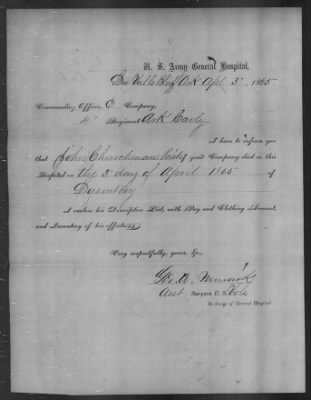 U. S. Army General Hospital,
DuValls Bluff Ark Apl. 3d, 1865
Commanding Officer, C Company,
4" Regiment Ark Cavly
I have to inform you
that John Churchman of your Company died in this
Hospital on the 3d day of April 1865 of
Dysentery
I enclose his Descriptive List, with Pay and Clothing Account,
and Inventory of his effects.
Very respectfully, yours, &c.,
Geo. W.
Asst Surgeon U. S. Vols
In charge of General Hospital